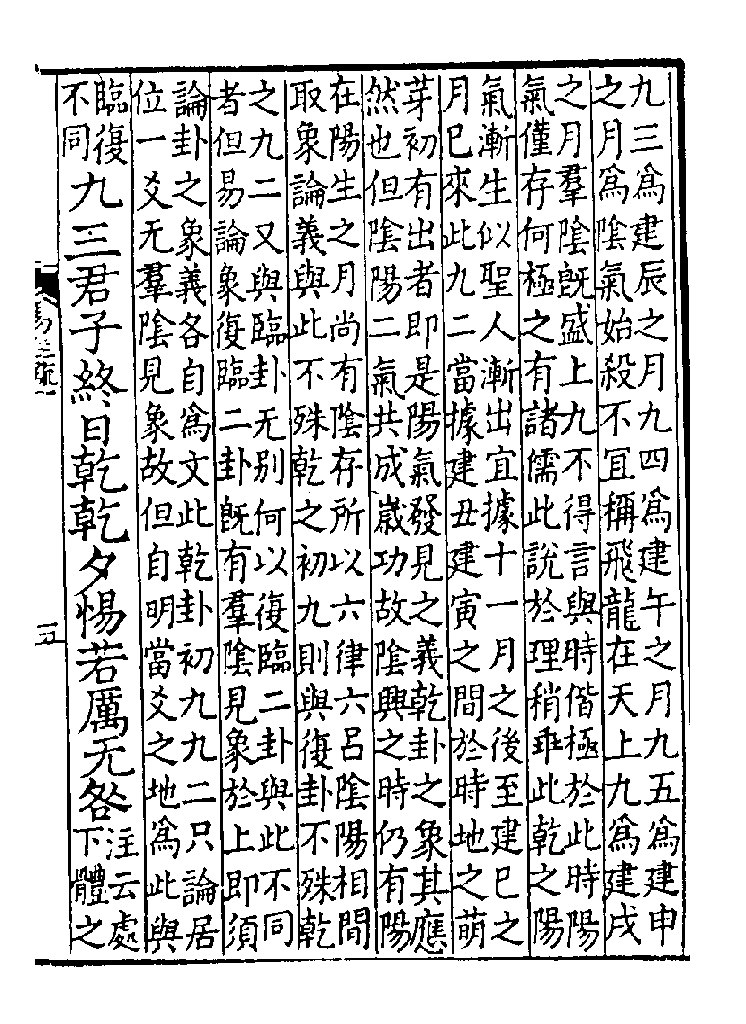 九三爲建辰之月九四爲建午之月九五爲建申
之月爲陰氣始殺不宜稱飛龍在天上九爲建戌
之月羣陰旣盛上九不得言與時偕極於此時陽
氣僅存何極之有諸儒此說於理稍乖此乾之陽
氣漸生似聖人漸出宜據十一月之後至建巳之
月巳來此九二當據建丑建寅之間於時地之萌
芽初有出者即是陽氣發見之義乾卦之象其應
然也但陰陽二氣共成歲功故陰興之時仍有陽
在陽生之月尚有陰存所以六律六呂陰陽相間
取象論義與此不殊乾之初九則與復卦不殊乾
之九二又與臨卦无別何以復臨二卦與此不同
者但易論象復臨二卦旣有羣陰見象於上即須
論卦之象義各自爲文此乾卦初九九二只論居
位一爻无羣陰見象故但自明當爻之地爲此與
臨復
不同
九三君子終日乾乾夕惕若厲无咎
注云處
下體之